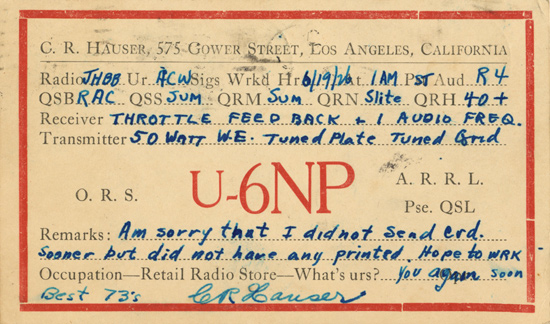 C. R. Hauser, 575 Gower Street, Los Angeles, California
Radio JHBB Ur ACW Sigs Wrkd Hr 6/19/26 At 1AM PST Aud. R4
QSB RAC QSS SUM QRM SUM QRN Slite QRH 40+
Receiver THROTTLE FEED BACK & 1 AUDIO FREQ.
Transmitter 50 WATT W.E. TUNED PLATE TUNED GRID
O. R. S. U-6NP A. R. R. L.
Pse. QSL
Remarks: Am sorry that I did not send crd.
Sooner but did not have any printed. Hope to WRK
Occupation—Retail Radio Store—What's urs? You again soon
Best 73's CR Hauser